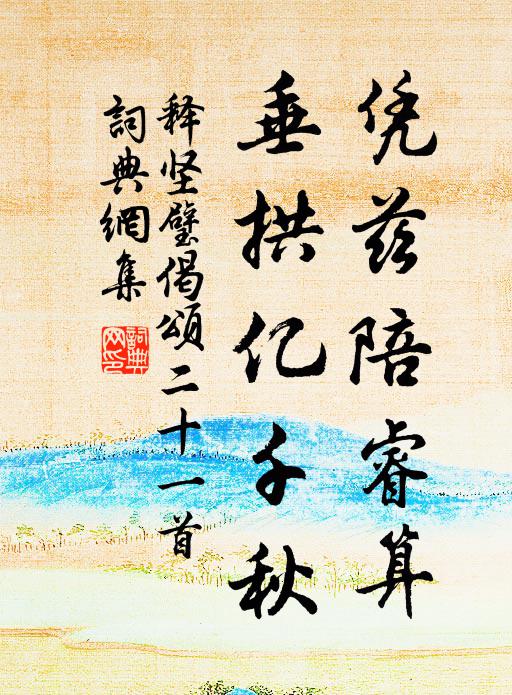 凭兹陪睿算
垂拱亿千秋
释坚璧偈颂二十一首
詞典網集
詞典网印